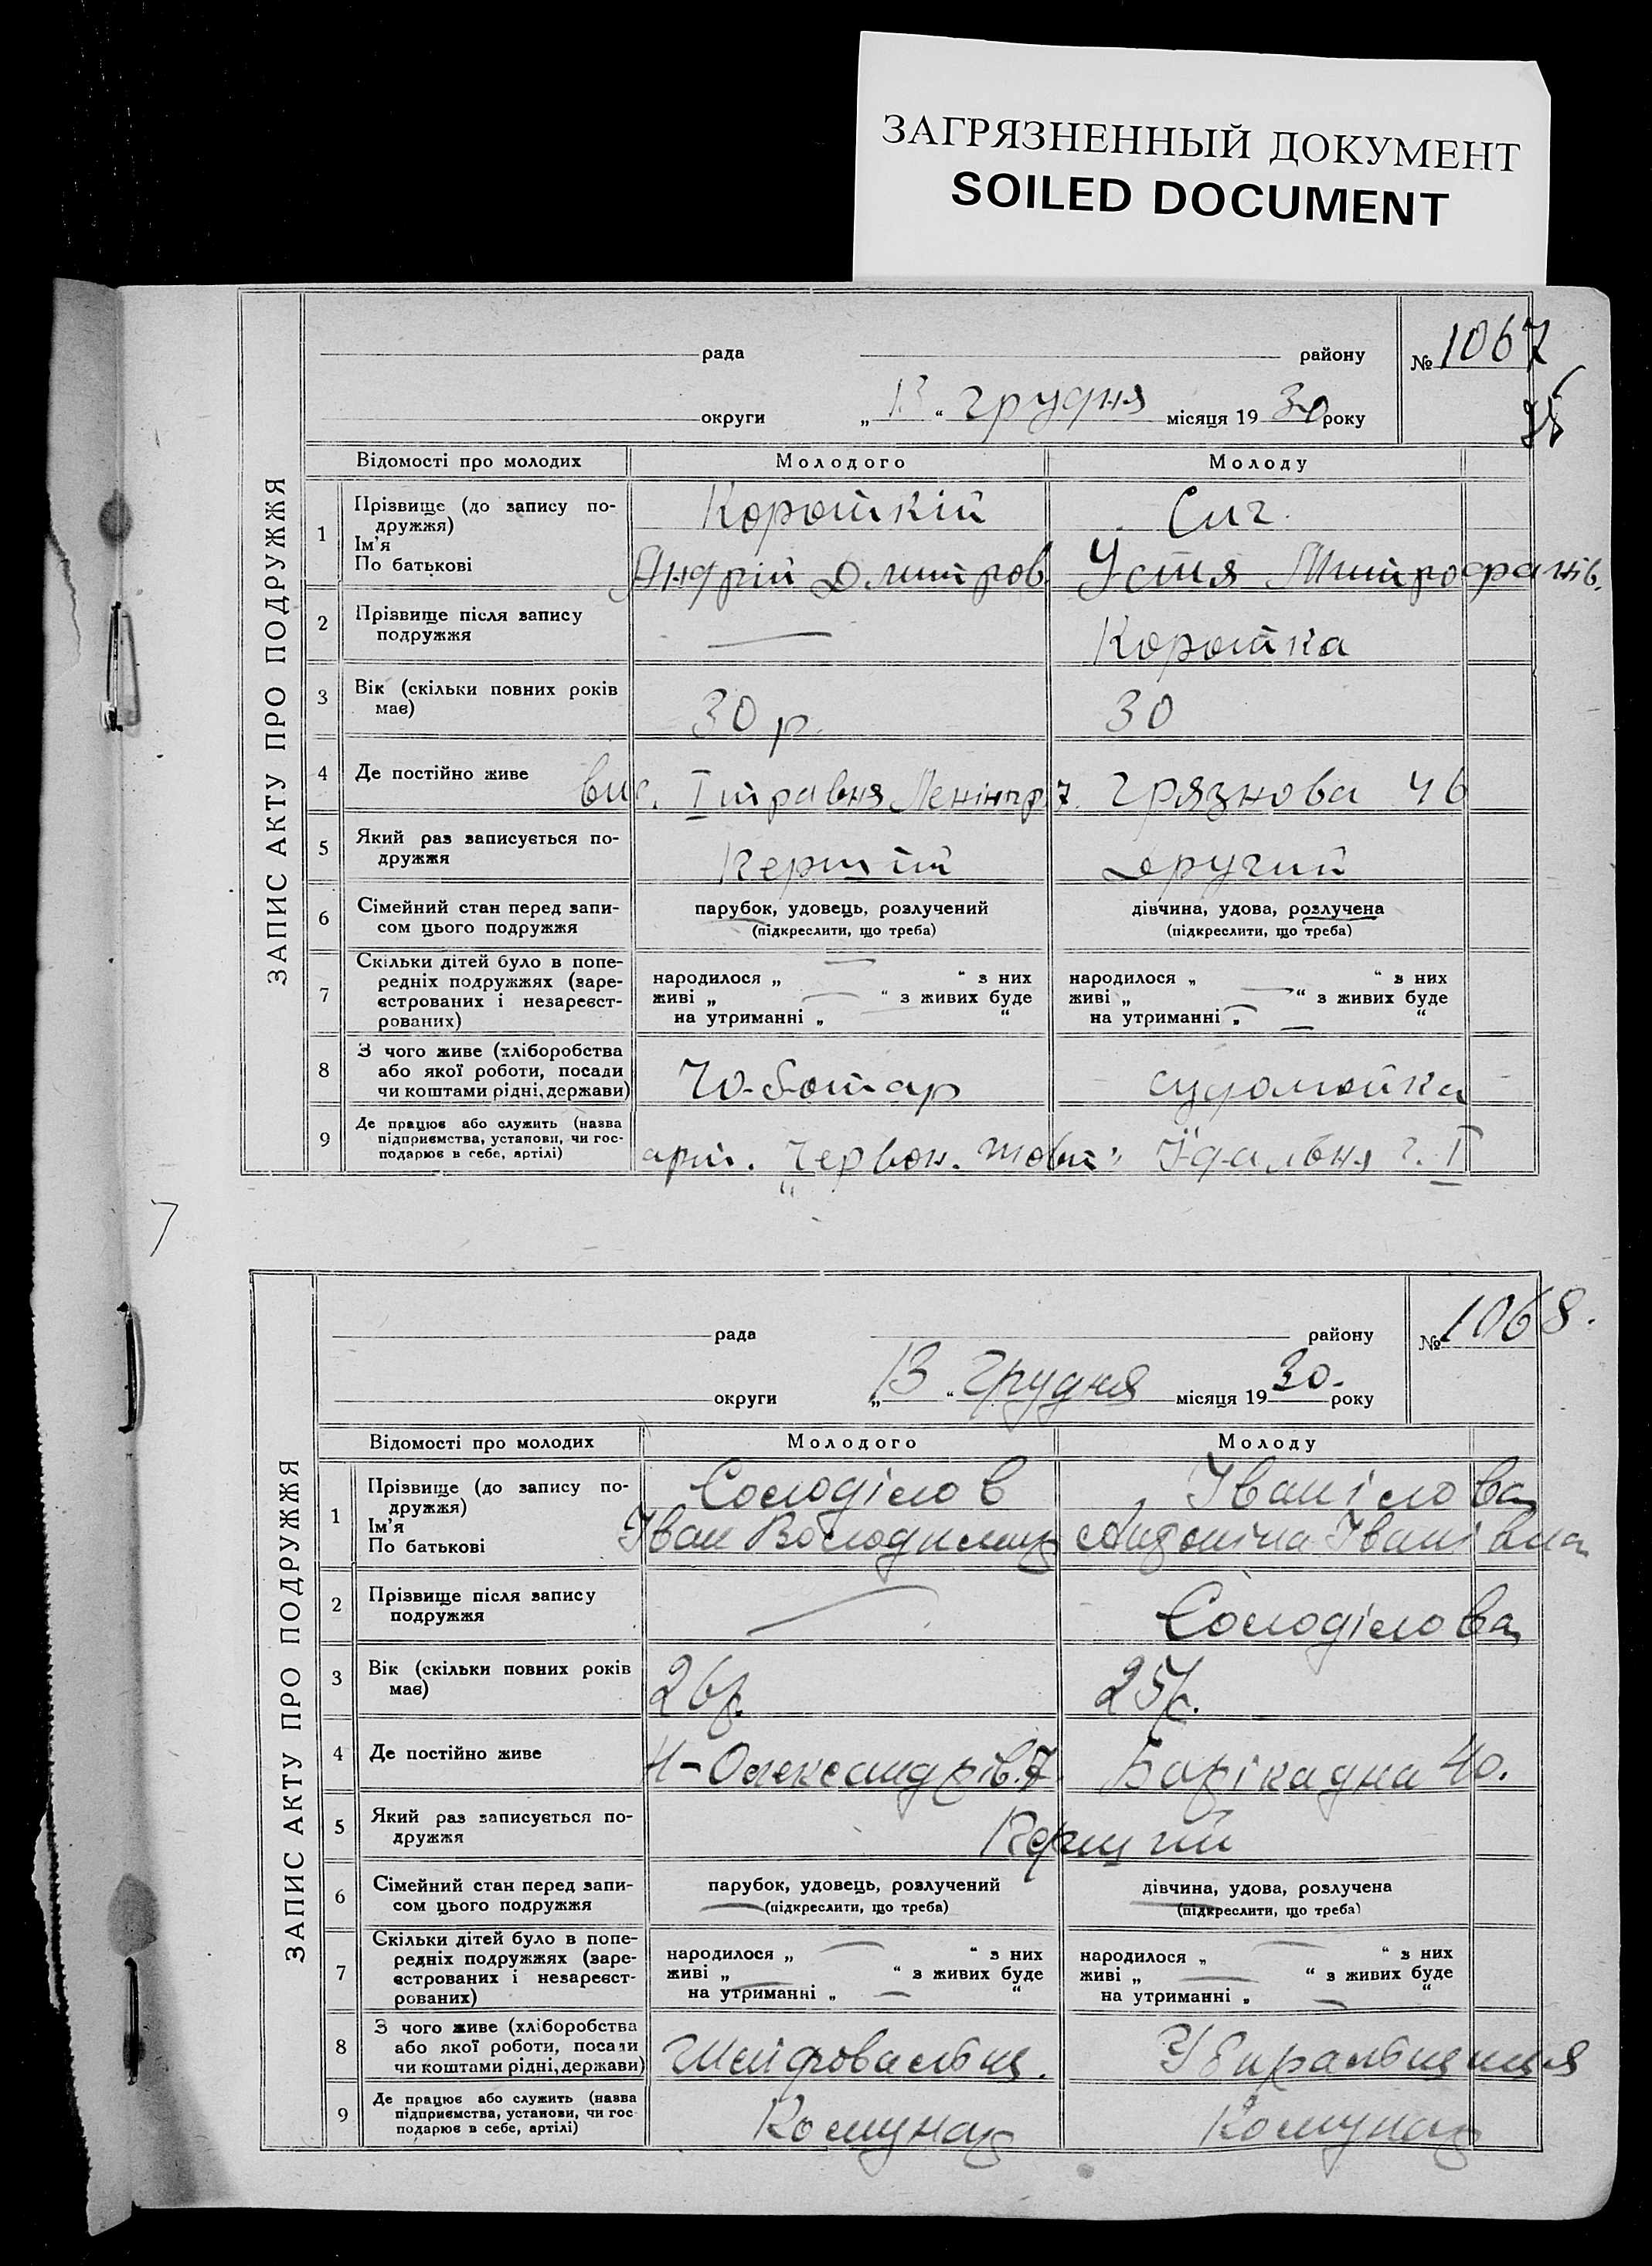 ЗАГРЯЗНЕННЫЙ ДОКУМЕНТ
SOILED DOCUMENT
ЗАПИС АКТУ ПРО ПОДРУЖЖЯ
рада району № 1067
округи „ 13 “ грудня місяця 19 30 року
Відомості про молодих Молодого Молоду
1 Прізвище (до запису по-
дружжя)
Ім'я
По батькові
Короткій Сич.
Андрій Дмитров Устя Митрофанів.
2 Прізвище після запису
подружжя
— Коротка
3 Вік (скільки повних років
має)
30 р. 30
4 Де постійно живе
вис. І травня Ленінгр 7. Грязнова 46
5 Який раз записується по-
дружжя
Перший Другий
6 Сімейний стан перед запи-
сом цього подружжя
парубок, удовець, розлучений
(підкреслити, що треба)
дівчина, удова, розлучена
(підкреслити, що треба)
7 Скільки дітей було в попе-
редніх подружжях (заре-
єстрованих і незареєст-
рованих)
народилося „ — “ з них
живі „ — “ з живих буде
на утриманні „ — “
народилося „ — “ з них
живі „ — “ з живих буде
на утриманні „ — “
8 З чого живе (хліборобства
або якої роботи, посади
чи коштами рідні, держави)
Чо-ботар судомойка
9 Де працює або служить (назва
підприємства, установи, чи гос-
подарює в себе, артілі)
арт. „Червон. Жовт“ Їдальня ч. І
7
ЗАПИС АКТУ ПРО ПОДРУЖЖЯ
рада району № 1068.
округи „ 13 “ Грудня місяця 19 30. року
Відомості про молодих Молодого Молоду
1 Прізвище (до запису по-
дружжя)
Ім'я
По батькові
Солоділов Іванілова
Іван Володимир Антоніна Іванівна
2 Прізвище після запису
подружжя
— Солоділова
3 Вік (скільки повних років
має)
26 р. 25 р.
4 Де постійно живе
Н-Олександрів. 7. Барікадна 40.
5 Який раз записується по-
дружжя
Перший
6 Сімейний стан перед запи-
сом цього подружжя
парубок, удовець, розлучений
(підкреслити, що треба)
дівчина, удова, розлучена
(підкреслити, що треба)
7 Скільки дітей було в попе-
редніх подружжях (заре-
єстрованих і незареєст-
рованих)
народилося „ — “ з них
живі „ — “ з живих буде
на утриманні „ — “
народилося „ — “ з них
живі „ — “ з живих буде
на утриманні „ — “
8 З чого живе (хліборобства
або якої роботи, посади
чи коштами рідні, держави)
Шліфовальщ. Убиральщиця
9 Де працює або служить (назва
підприємства, установи, чи гос-
подарює в себе, артілі)
Комунар Комунар